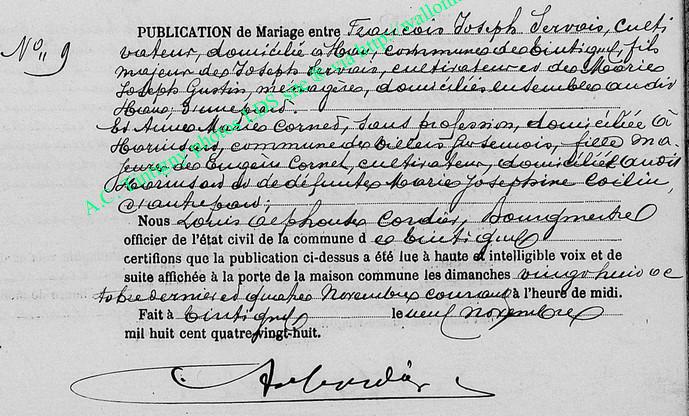 N° 9
PUBLICATION de Mariage entre François Joseph Servais, culti
vateur, domicilié à Han, commune de Tintigny, fils
majeur de Joseph Servais, cultivateur et de Marie
Joseph Gustin, ménagère, domiciliés ensemble au dit
Han; d'une part.
Et Anne Marie Cornet, sans profession, domiciliée à
Harinsart, commune de Villers sur Semois, fille ma
jeure de Eugène Cornet, cultivateur, domicilié au dit
Harinsart et de défunte Marie Josephine
d'autre part;
Nous Louis Alphonse Cordier, Bourgmestre
officier de l'état civil de la commune d e Tintigny
certifions que la publication ci-dessus a été lue à haute et intelligible voix et de
suite affichée à la porte de la maison commune les dimanches vingt huit oc
tobre dernier et quatre Novembre courant à l'heure de midi.
Fait à Tintigny le neuf Novembre
mil huit cent quatre-vingt-huit.
A.C. Tintigny photos LDS site @ via http://wallon